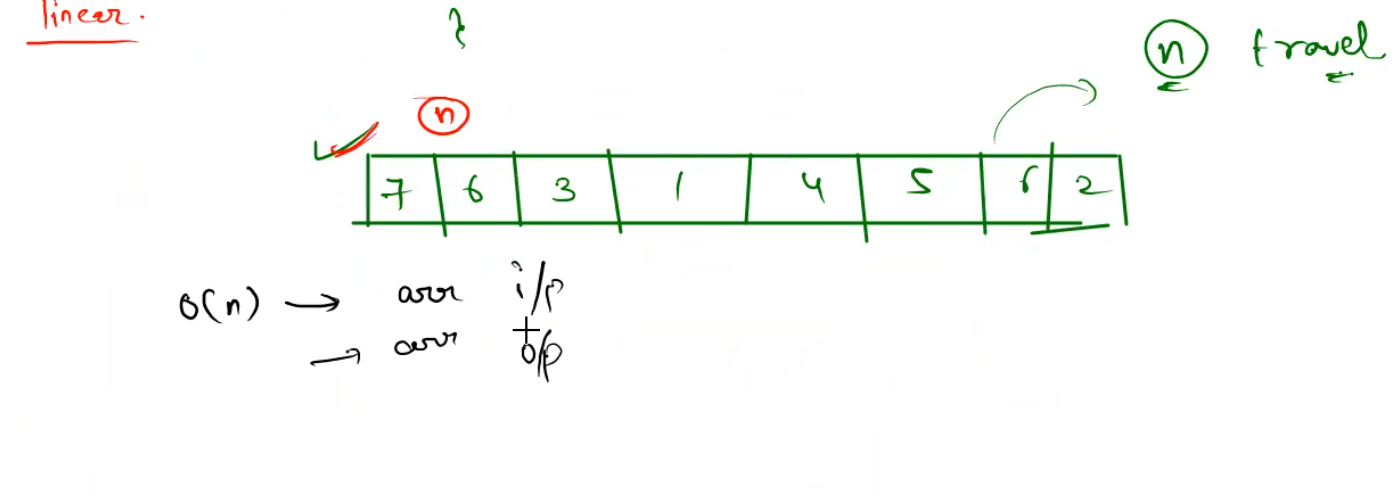 linear.
}
n travel
n
7 6 3 1 4 5 6 2
O(n) → arr i/p
→ arr o/p